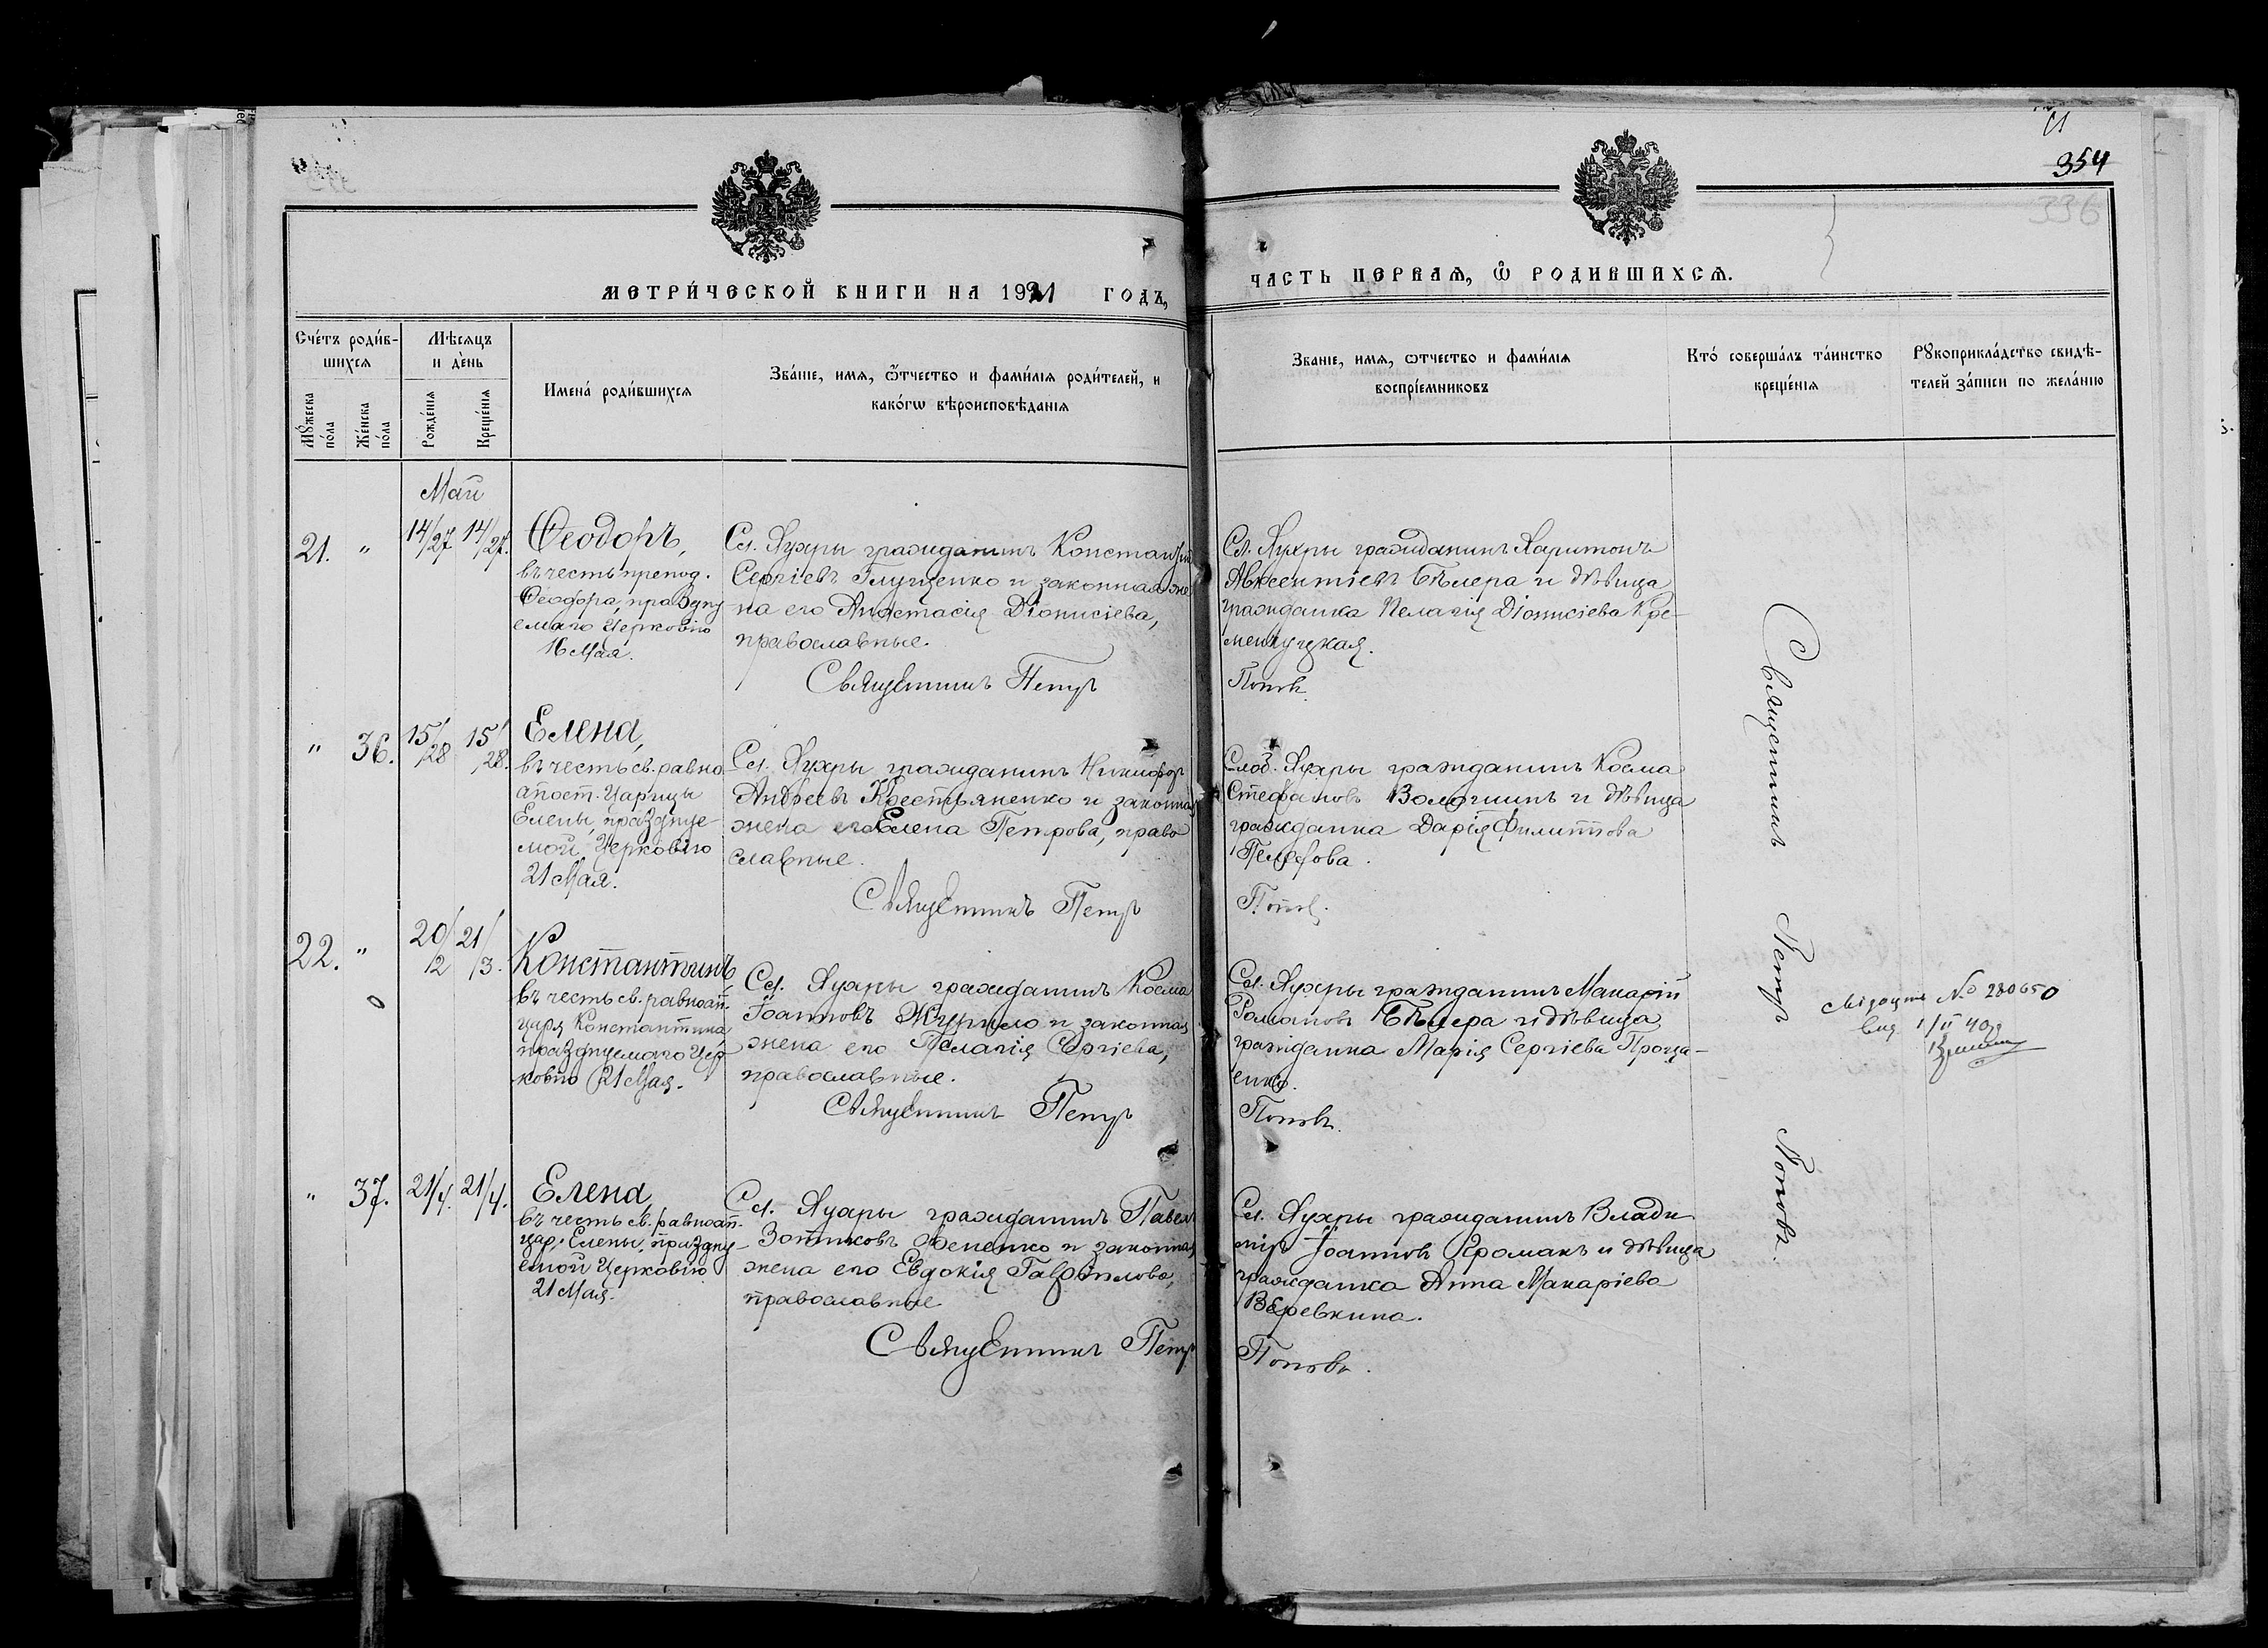 354
336
МЕТРИ́ЧЕСКОЙ КНИГИ НА 1921 ГОДЪ,
ЧАСТЬ ПЕРВАЯ, Ѡ РОДИВШИХСЯ.
Сче́тъ роди́в-
шихся
Мꙋжеска
по́ла
Же́нска
по́ла
Мѣсяцъ
и де́нь
Рожде́нія
Креще́нія
Имена́ роди́вшихся
Зва́ніе, имя, ѿтчество и фами́лія роди́телей, и
како́гѡ вѣроисповѣданія
Званіе, имя, ѿтчество и фами́лія
воспріемниковъ
Кто́ соверша́лъ та́инство
креще́нія
Рꙋкоприкла́дство свидѣ-
телей за́писи по жела́нію
Май
21. " 14/27 14/27.
Ѳеодоръ,
въ честь препод.
Ѳеодора, праздну
емаго Церковію
16 Мая.
Сл. Яухры гражданинъ Константинъ
Сергіевъ Глущенко и законная же
на его Анастасія Діонисіева,
православные.
Священникъ Петръ
Сл. Яухры гражданинъ Харитонъ
Авксентіевъ Бѣлера и дѣвица
гражданка Пелагія Діонисіева Кре-
менчуцкая.
Поповъ.
" 36. 15/28 15/28.
Елена,
въ честь св. равно
апост. Царицы
Елены, праздуе-
мой Церковію
21 Мая.
Сл. Яухры гражданинъ Никифоръ
Андреевъ Крестьяненко и законная
жена его Елена Петрова, право
славные.
Священникъ Петръ
Слоб. Яухры гражданинъ Косма
Стефановъ Волошинъ и дѣвица
гражданка Дарія Филиппова
Поповъ.
22. " 20/2 21/3.
Константинъ,
въ честь св. равноап.
царя Константина,
празднуемаго Цер
ковію 21 Мая.
Сл. Яухры гражданинъ Косма
Іоанновъ Журило и законная
жена его Пелагія Сергіева,
православные.
Священникъ Петръ
Сл. Яухры гражданинъ Макарій
Романовъ Бѣлера и дѣвица
гражданка Марія Сергіева Проце-
енко.
Поповъ.
№ 280650
" 37. 21/4. 21/4.
Елена,
въ честь св. равноап.
цар. Елены, празну-
емой Церковію
21 Мая.
Сл. Яухры гражданинъ Павелъ
Зотиковъ Фененко и законная
жена его Евдокія Гавріилова,
православные
Священникъ Петръ
Сл. Яухры гражданинъ Влади
міръ Іоанновъ Хромахъ и дѣвица
гражданка Анна Макаріева
Веревкина.
Поповъ.
Священникъ Петръ Поповъ.